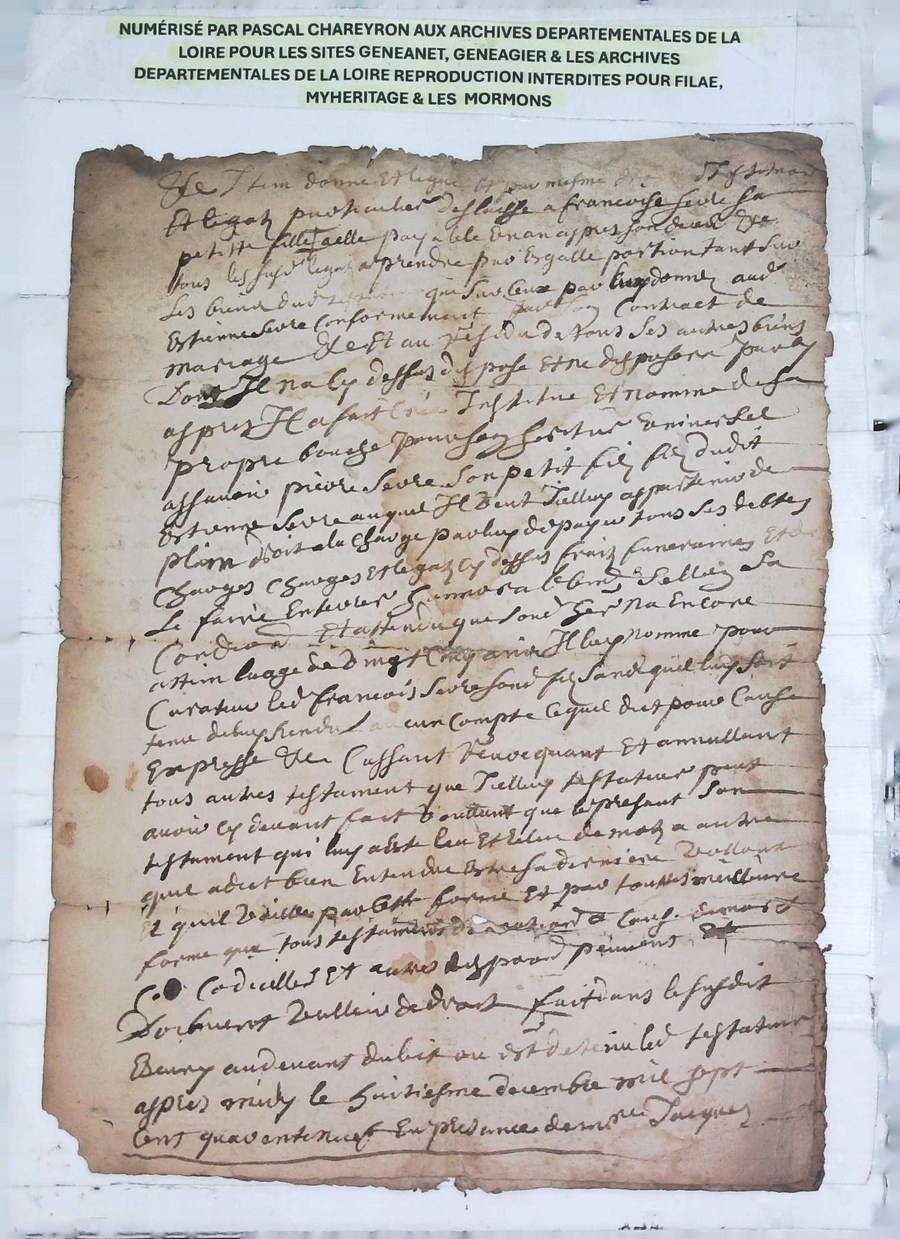 NUMÉRISÉ PAR PASCAL CHAREYRON AUX ARCHIVES DEPARTEMENTALES DE LA
LOIRE POUR LES SITES GENEANET, GENEAGIER & LES ARCHIVES
DEPARTEMENTALES DE LA LOIRE REPRODUCTION INTERDITES POUR FILAE,
MYHERITAGE & LES MORMONS
Item donne et legue et par mesme
Et legatz particulier deslaisse a francoise sevre sa
petitte fille a elle payable un an appres son deced
tous lesd legatz a prendre par Esgalle portion tant sur
Les biens dud que sur ceux par luy donnez aud
Estienne sevre conformement son Contract de
mariage Et au residu de tous ses autres biens
Dont Il na cy dessus dispose Et ne disposera par cy
appres Il a fait Cree Institue Et nomme de sa
propre bouche pour son heritier universel
assavoir pierre sevre son petit filz filz dudit
Estienne sevre auquel Il veut Icelluy appartenir de
plain droit a la charge par luy de payer tous ses debtes
charges Et legatz cy dessus fraix funeraires Et de
Le faire Enterrer honnorablement sellon sa
Condition Et attendu que sond her na Encore
attein laage de vingt cinq annees Il luy nomme pour
Curateur led francois sevre sond filz sans quil luy soit
tenu de luy rendre aucun Compte lequel dict pour Cause
Expresse Cassant Revocquant Et annullant
tous autres testament que Icelluy testateur peut
avoir cy devant fait voullant que le present son
testament qui luy a este leu Et Releu de mot a autre
quil a dict bien Entendre Estre sa derniere vollonte
Et quil vaille par cette forme Et par touttes meilleure
forme que tous testaments Cause de mort
Codicilles Et autres disposons peuvent
Doibvent valloir de droit fait dans le susdit
au devant du lit ou est detenu led testateur
appres midy le huitiesme decembre mil sept
cent quarente neuf En presance de Jacques